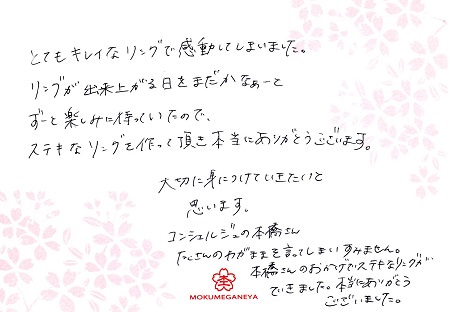 とてもキレイなリングで感動してしまいました。
リングが出来上がる日をまだかなぁーと
ずーと楽しみに待っていたので、
ステキなリングを作って頂き本当にありがとうございます。
大切に身につけていきたいと
思います。
コンシェルジュの本橋さん
たくさんのわがままを言ってしまいすみません。
本橋さんのおかげでステキなリングが
できました。本当にありがとう
ございました。
MOKUMEGANEYA